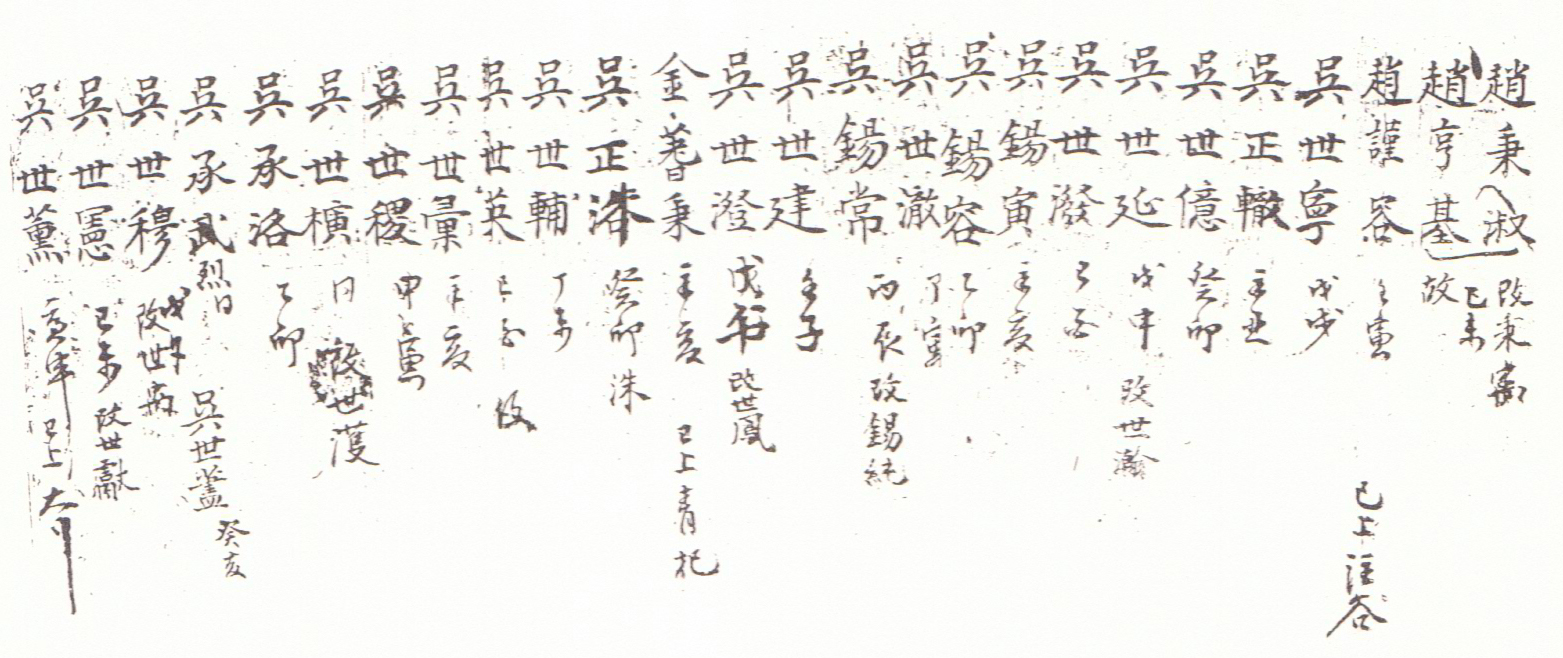 趙秉淑 改秉 己未
趙亨基 故
趙謹容 寅 已上注谷
吳世寧 戊戌
吳正轍 辛丑
吳世億 癸卯
吳世延 戊申 改世瀚
吳世潑 乙酉
吳錫寅 辛亥
吳錫容 乙卯
吳世澈 寅
吳錫常 丙辰 改錫純
吳世建 壬子
吳世澄 戊午 改世鳳
金蓍秉 辛亥 已上青杞
吳正洙 癸卯 洙
吳世輔 丁未
吳世英 改
吳世彙 辛亥
吳世稷 申
吳世橫 改世濩
吳承洛 乙卯
吳承武 烈 吳世蓋 癸亥
吳世穆 戊午 改世
吳世憲 己未 改世獻
吳世薰 已上